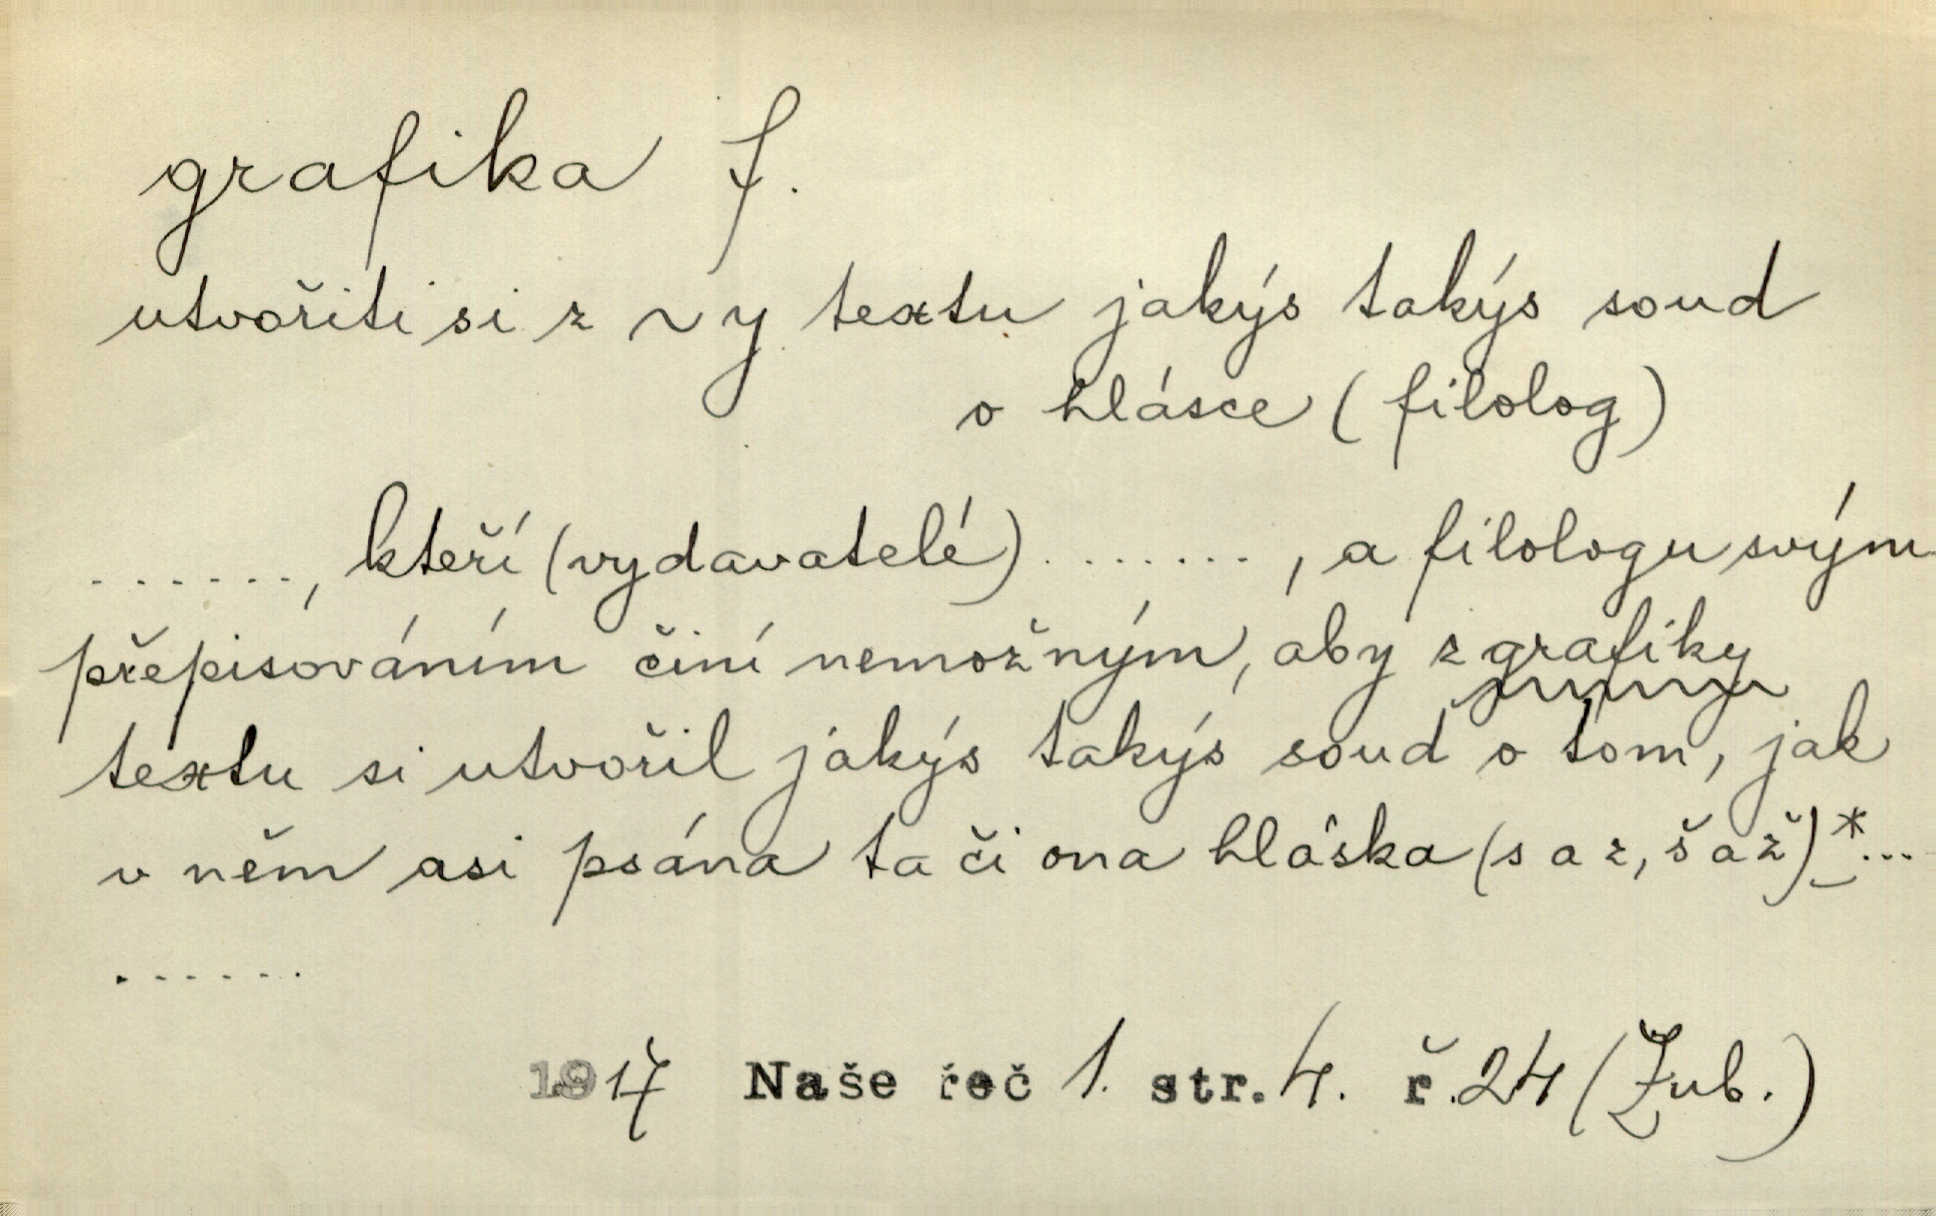 grafika f.
utvořiti si z ~y textu jakýs takýs soud
o hlásce (filolog)
......, kteří (vydavatelé) ........, a filologu svým
přepisováním činí nemožným, aby z grafiky
textu si utvořil jakýs takýs soud o tom, jak
v něm asi psána ta či ona hláska (s a z, š a ž)*...
......
1917 Naše řeč 1. str. 4. ř. 24 (Zub.)